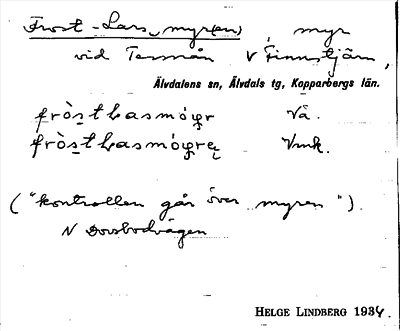 Frost-Lars,myr(en), myr
vid Tesmån V Finnstjärn,
Älvdalens sn, Älvdals tg, Kopparbergs län.
fròstLasmóyr Vå.
fròstLasmóyrę Vmk.
("kontrollen går över myren").
N Dovsbodvägen
HELGE LINDBERG 1934.